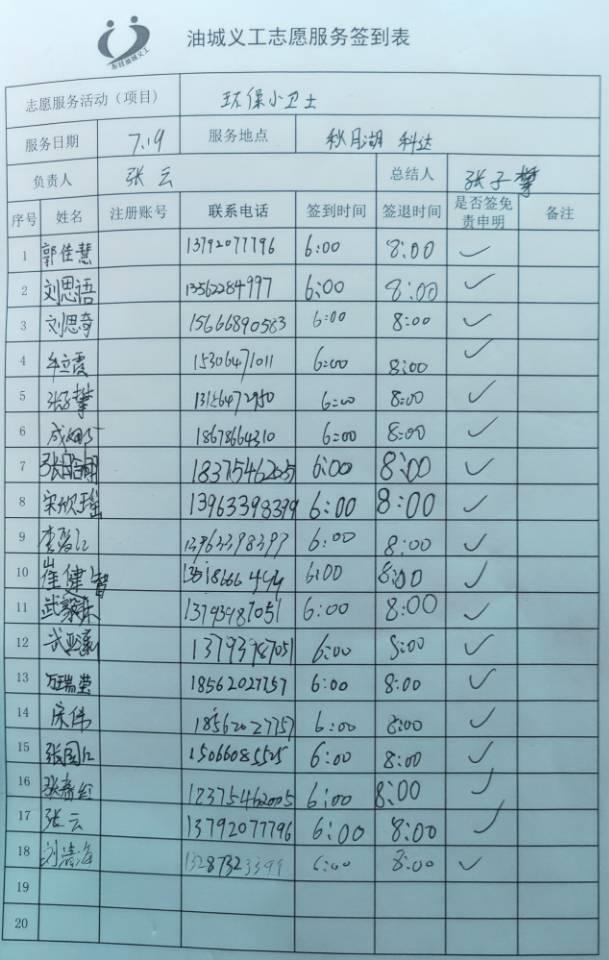 东营油城义工
油城义工志愿服务签到表
志愿服务活动（项目） 环保小卫士
服务日期 7.19 服务地点 秋月湖 科达
负责人 张云 总结人 张子攀
序号 姓名 注册账号 联系电话 签到时间 签退时间 是否签免责申明 备注
1 郭佳慧 13792077796 6:00 8:00 ✓
2 刘思语 13562284997 6:00 8:00 ✓
3 刘思奇 15666890583 6:00 8:00 ✓
4 牟立霞 15306471011 6:00 8:00 ✓
5 张子攀 6:00 8:00 ✓
6 18678664310 6:00 8:00 ✓
7 18375462005 6:00 8:00 ✓
8 宋欣瑶 13963398399 6:00 8:00 ✓
9 13963398397 6:00 8:00 ✓
10 崔健智 6:00 8:00 ✓
11 13793987051 6:00 8:00 ✓
12 13793987051 6:00 8:00 ✓
13 18562027757 6:00 8:00 ✓
14 宋伟 18562027757 6:00 8:00 ✓
15 张国江 15066085525 6:00 8:00 ✓
16 张春红 6:00 8:00 ✓
17 张云 13792077796 6:00 8:00 ✓
18 刘清海 6:00 8:00 ✓
19
20